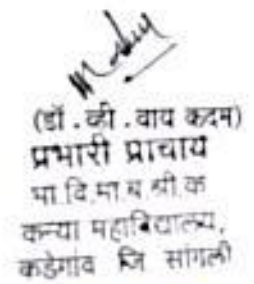 (डॉ . व्ही . वाय कदम)
प्रभारी प्राचार्य
भा दि.मा य श्री.क
कन्या महाविद्यालय,
कडेगांव जि सांगली